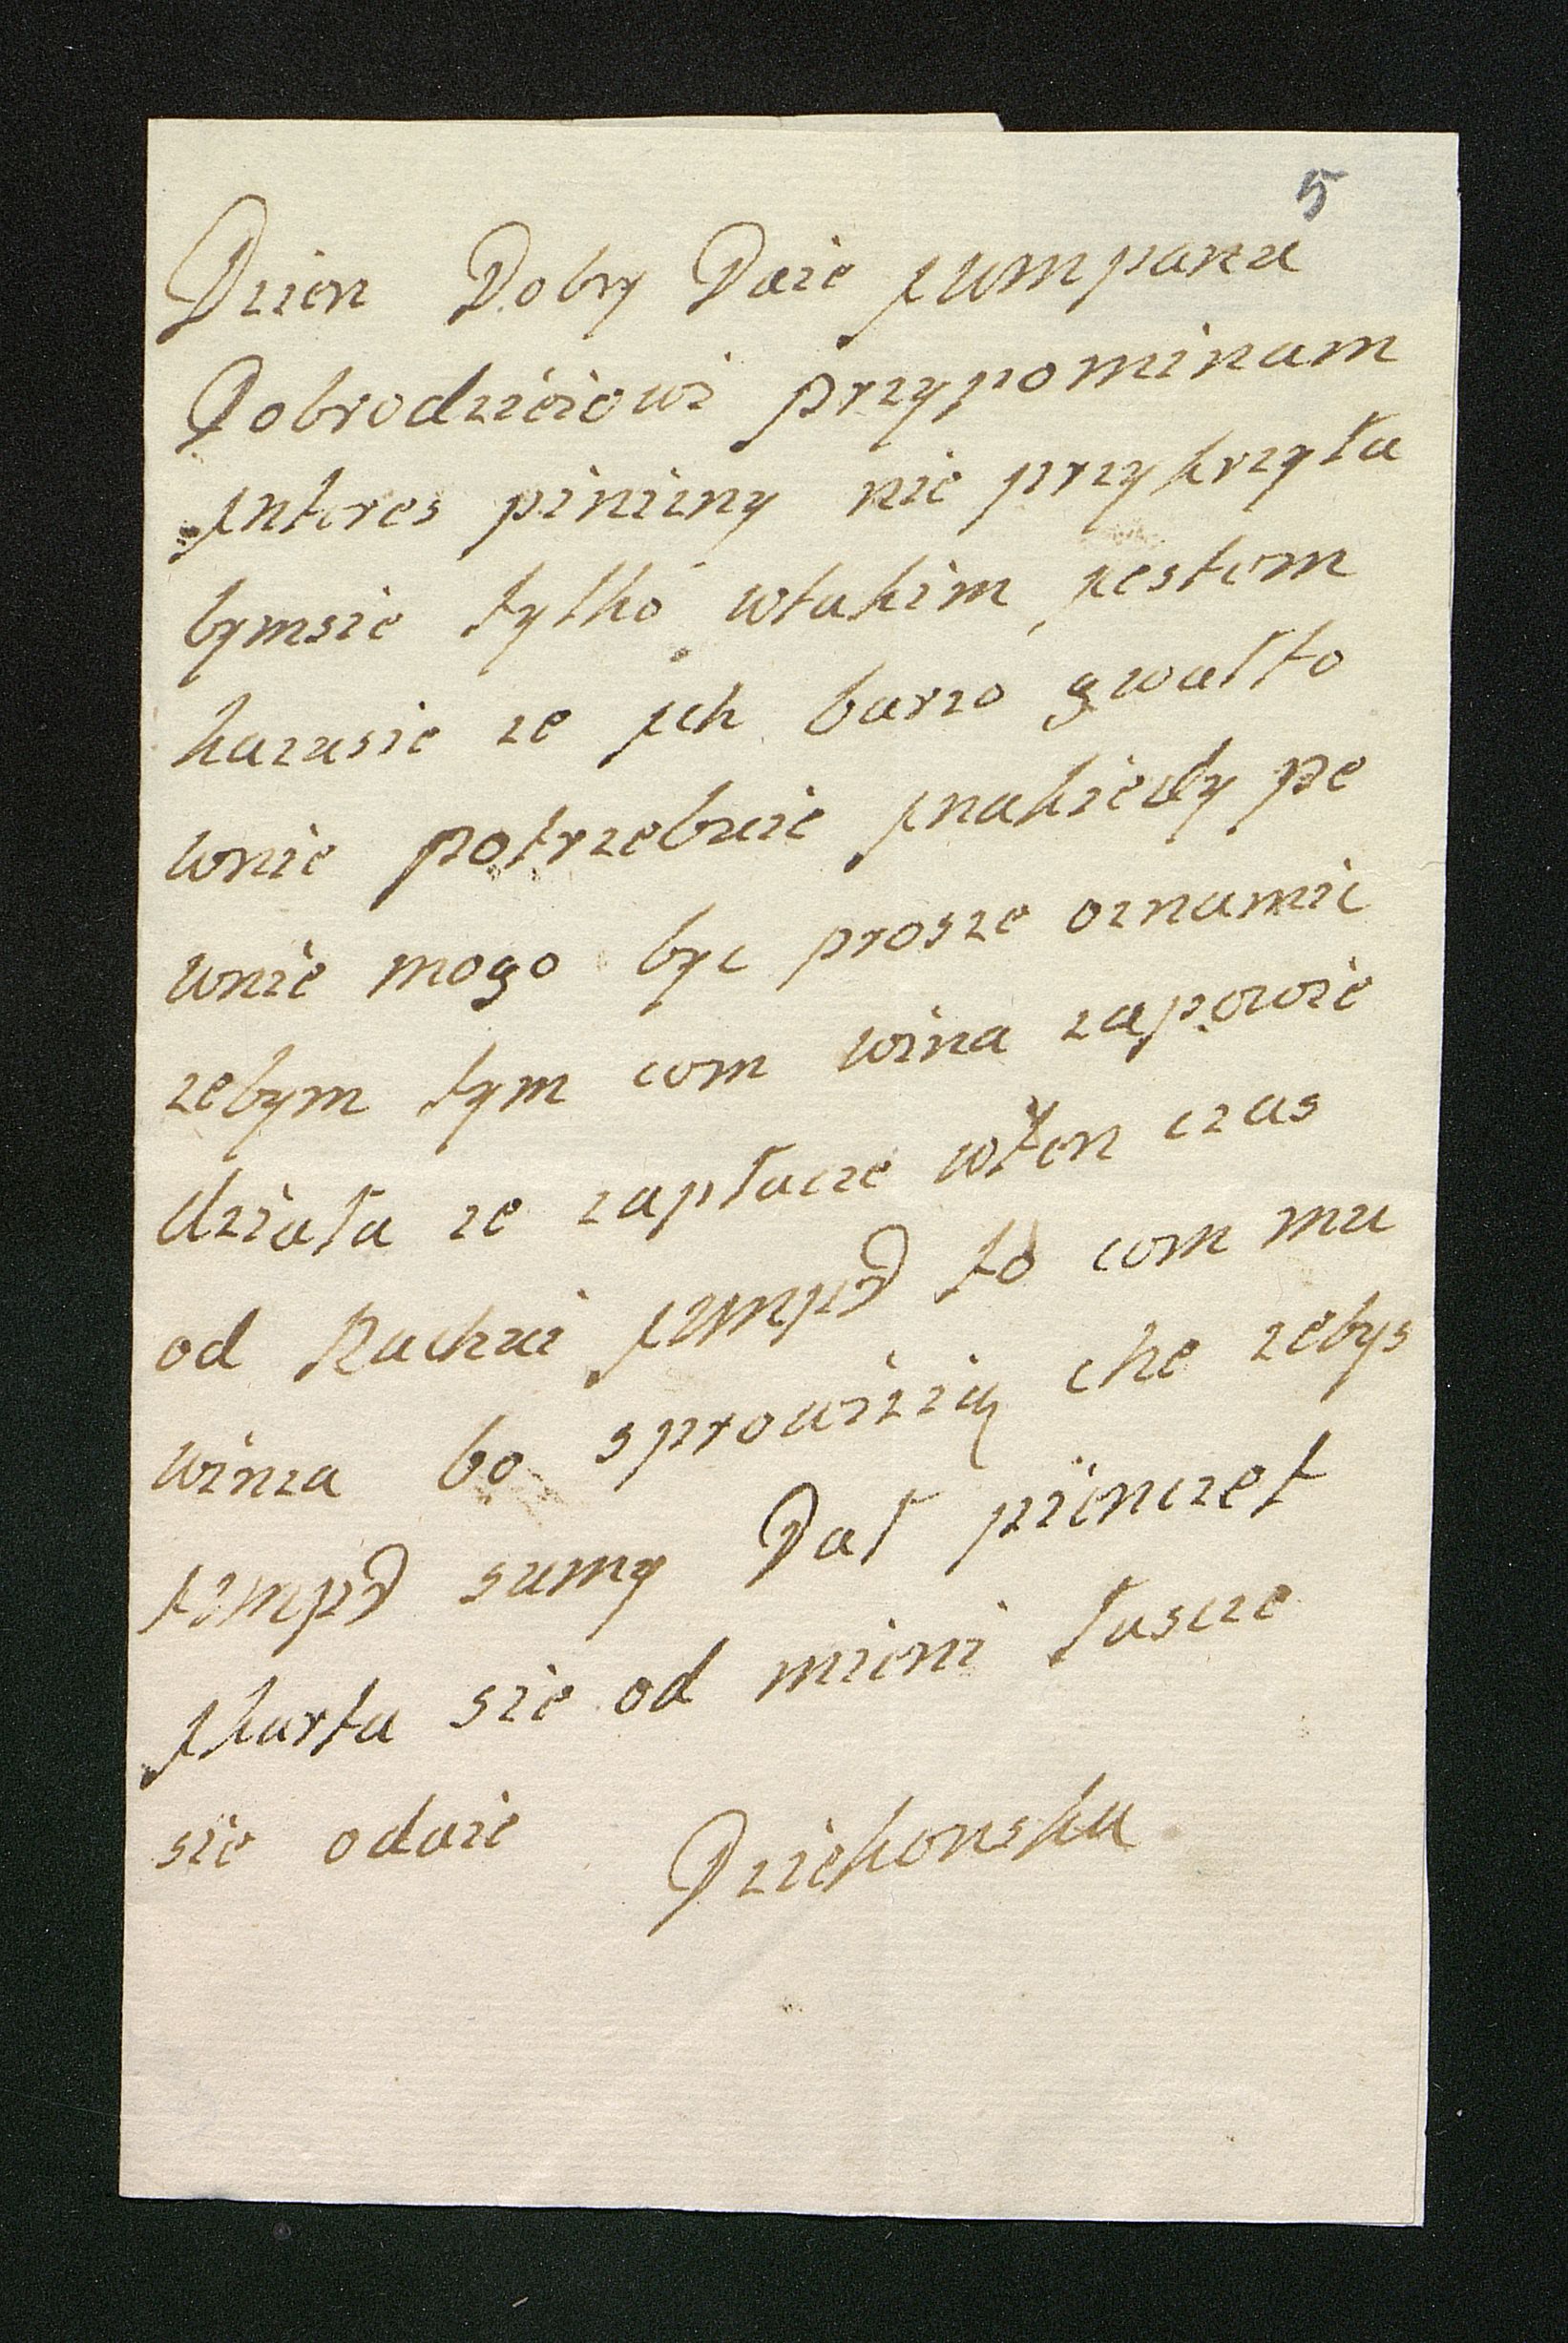 5
Dzien Dobry Daie jumpanu
Dobrodzieiowi przypominam
jnteres pinizny nie przykrzyła
bymsie tylko wtakim jestem
hazasie ze jch barzo gwałto
wnie potrzebuie jnakiedy pe
wnie mogo byc prosze oznamic
zebym tym com wina zapowie
działa ze zapłacze wten czas
od Rachui jumpD to com mu
wina bo sprowizią che zebys
jumpD sumy Dał piienczet
jkarta sie od mieni łascze
sie odaie Dziekonska